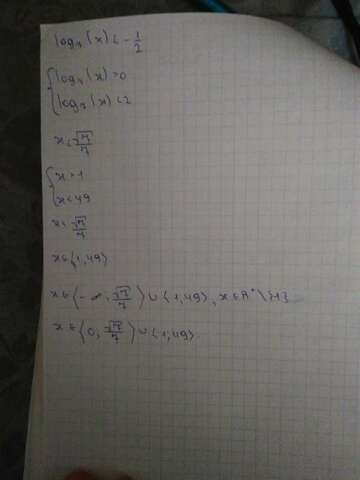 log₇(x) < -1/2
{ log₇(x) > 0
log₇(x) < 2
x < √7/7
{ x > 1
x < 49
x < √7/7
x ∈ ⟨1, 49⟩
x ∈ ⟨-∞, √7/7⟩ ∪ ⟨1, 49⟩, x ∈ R⁺\{1}
x ∈ ⟨0, √7/7⟩ ∪ ⟨1, 49⟩